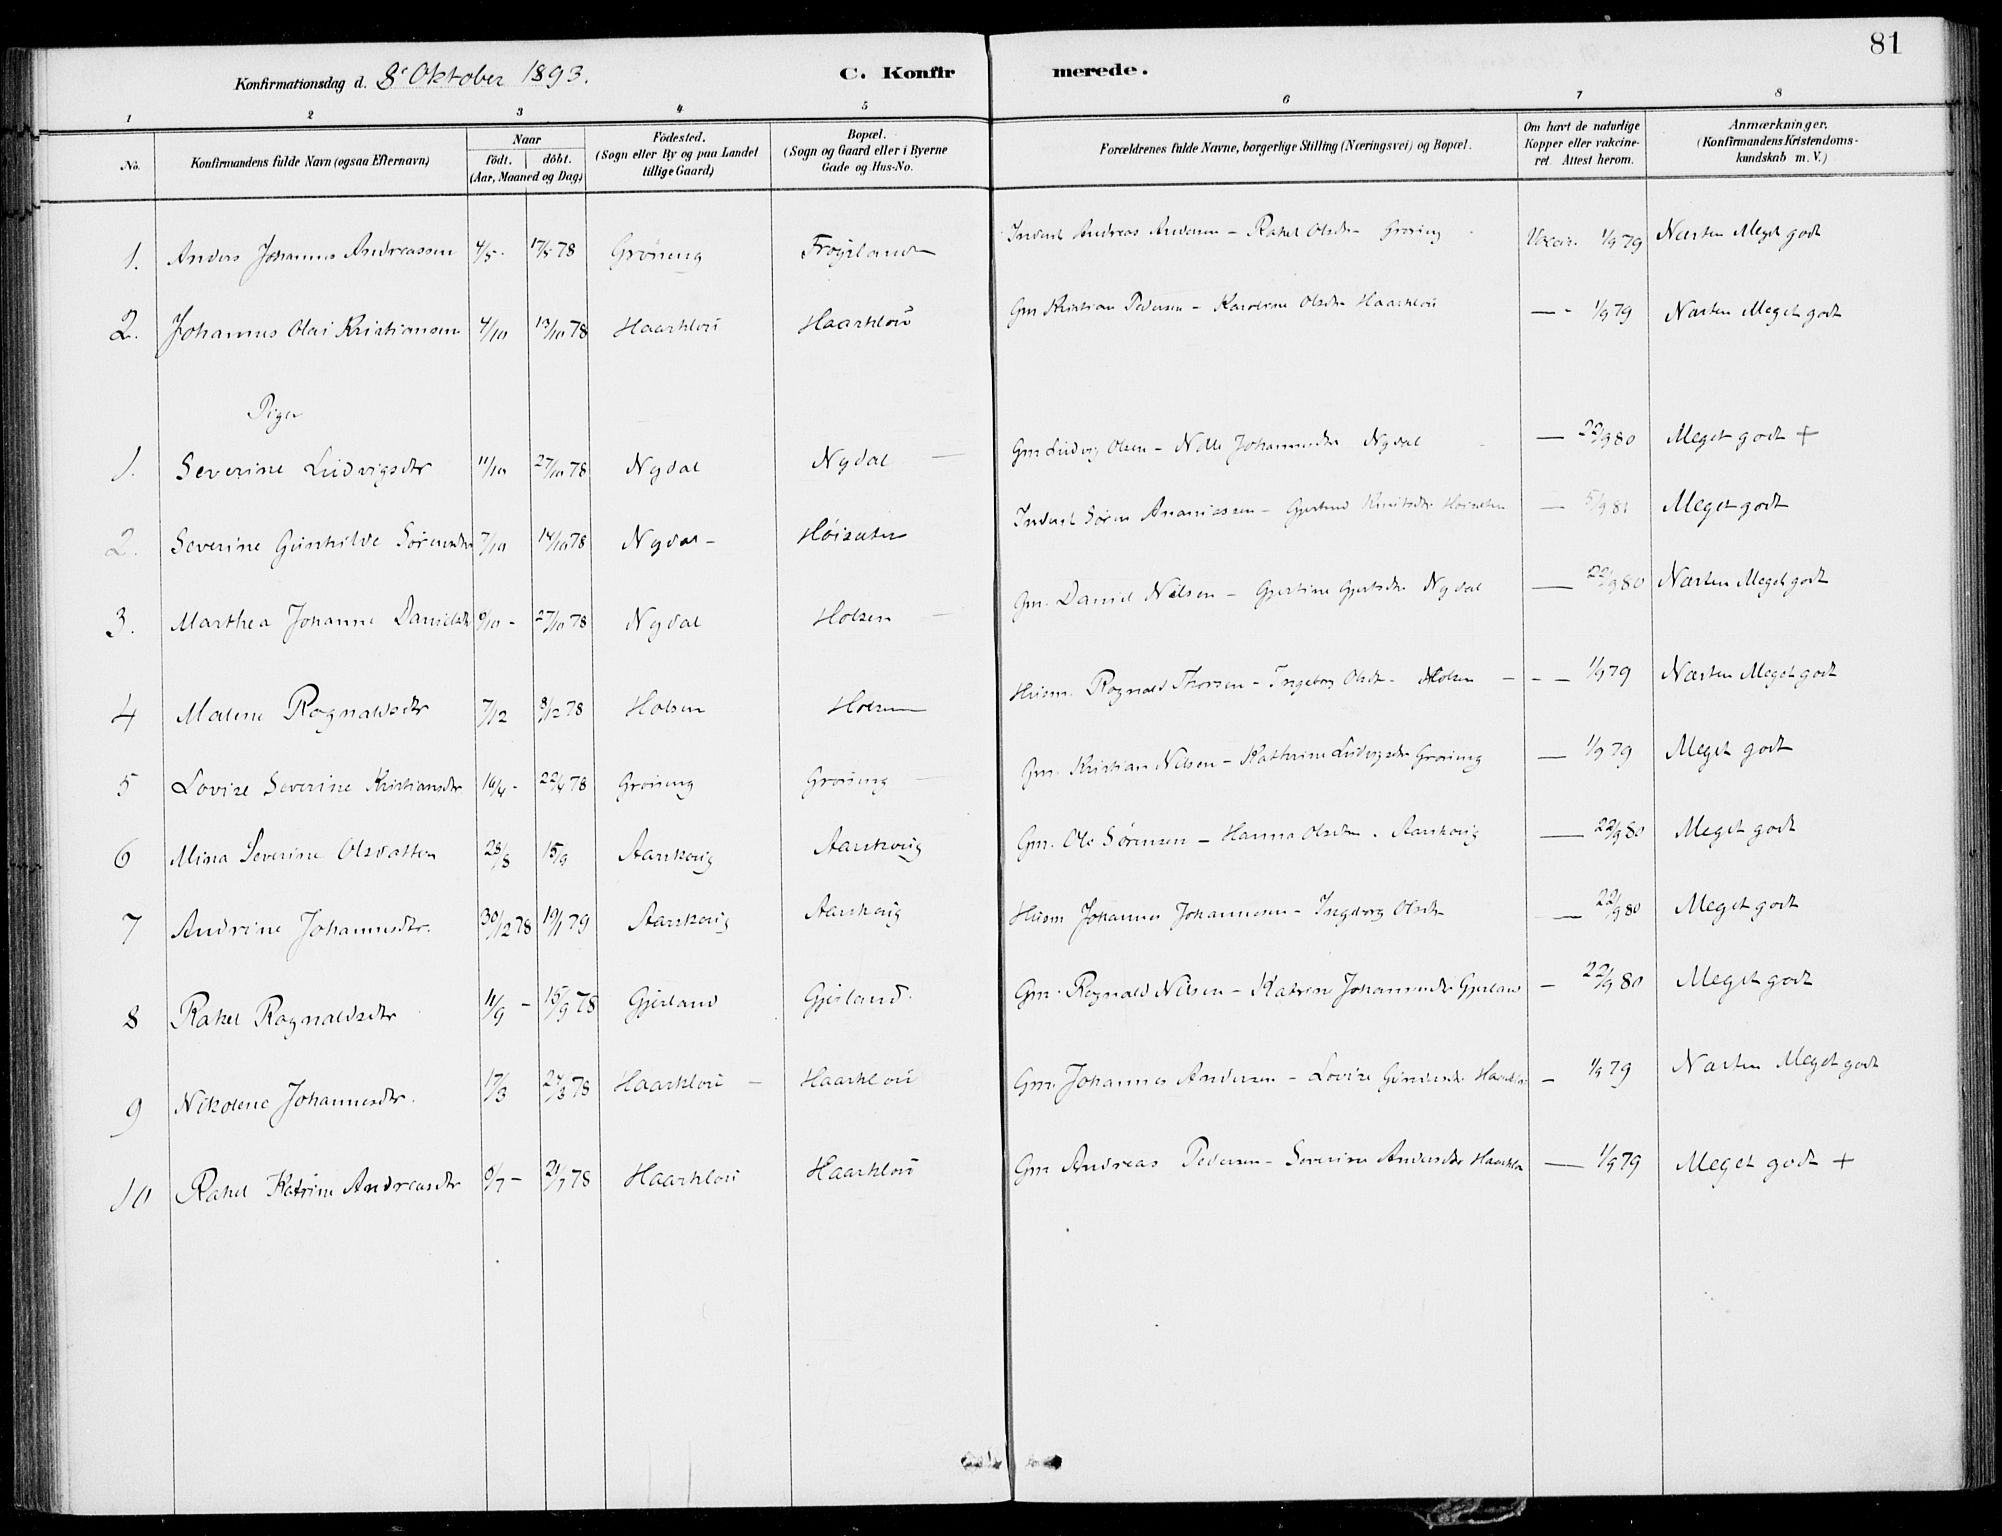 81
Konfirmationsdag d. 8' Oktober 1893. C. Konfirmerede.
1 2 3 4 5 6 7 8
No. Konfirmandens fulde Navn (ogsaa Efternavn) Naar födt. döbt. (Aar, Maaned og Dag) Födested. (Sogn eller By og paa Landet tillige Gaard) Bopæl. (Sogn og Gaard eller i Byerne Gade og Hus-No. Forældrenes fulde Navne, borgerlige Stilling (Næringsvei) og Bopæl. Om havt de naturlige Kopper eller vakcineret. Attest herom. Anmærkninger. (Konfirmandens Kristendomskundskab m. V.)
1. Anders Johannes Andreassen 4/5 - 17/5 78 Grøneng Frøysland Inderst Andreas Andersen - Rakel Olsdtr Grøneng Vaccin. 1/9 79 Næsten Meget godt
2. Johannes Olai Kristiansen 4/10 13/10 78 Haarklou Haarklou Gm Kristian Pedersen - Karoline Olsdtr Haarklou — - 1/9 79 Næsten Meget godt
Piger
1. Severine Ludvigsdtr 11/10 27/10 78 Nydal Nydal — Gm Ludvig Olsen - Nille Johannesdtr Nydal — 22/9 80 Meget godt +
2. Severine Gunhilde Sørensdtr 7/10 14/10 78 Nydal - Høisæter Inderst Søren Ananiassen - Gjertrud Knutsdtr Høisæter — 5/9 81 Meget godt
3. Marthea Johanne Danielsdtr 9/10 - 27/10 78 Nydal Holsen — Gm. Daniel Nilsen - Gjertine Gjertsdtr Nydal — 22/9 80 Næsten Meget godt
4 Malene Ragnaldsdtr 7/12 8/12 78 Holsen Holsen Husm. Ragnald Thorsen - Ingeborg Olsdtr - Holsen - - - 1/9 79 Næsten Meget godt
5 Lovise Severine Kristiansdtr 16/4 - 22/4 78 Grøneng Grøneng — Gm. Kristian Nilsen - Kathrine Ludvigsdtr Grøneng — 1/9 79 Meget godt
6 Mina Severine Olsdatter 28/8 15/9 Aarskoug Aarskoug Gm. Ole Sørensen - Hanna Olsdtr. Aarskoug — 22/9 80 Meget godt
7 Andrine Johannesdtr. 30/12 78 19/1 79 Aarskoug Aarskoug Husm Johannes Johannessen - Ingeborg Olsdtr — 22/9 80 Meget godt
8 Rakel Ragnaldsdtr 11/9 - 15/9 78 Gjerland Gjerland. Gm. Ragnald Nilsen - Katrine Johannesdtr Gjerland — 22/9 80 Meget godt
9 Nikolene Johannesdtr. 17/3 24/3 78 Haarklou — Haarklou Gm. Johannes Andersen - Lovise Haarklou — 1/9 79 Næsten Meget godt
10 Rakel Katrine Andreasdtr 9/7 - 21/7 78 Haarklou Haarklou Gm Andreas Pedersen - Severine Andersdtr Haarklou — 1/9 79 Meget godt +